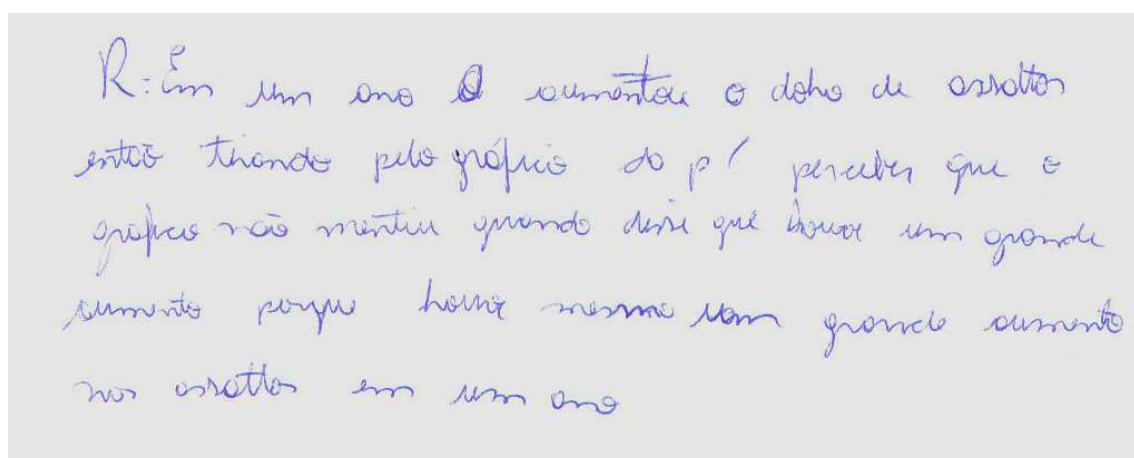 R: Em um ano aumentou o dobro de assaltos
então tirando pelo gráfico da p/ perceber que o
gráfico não mentiu quando disse que houve um grande
aumento porque houve mesmo um grande aumento
nos assaltos em um ano